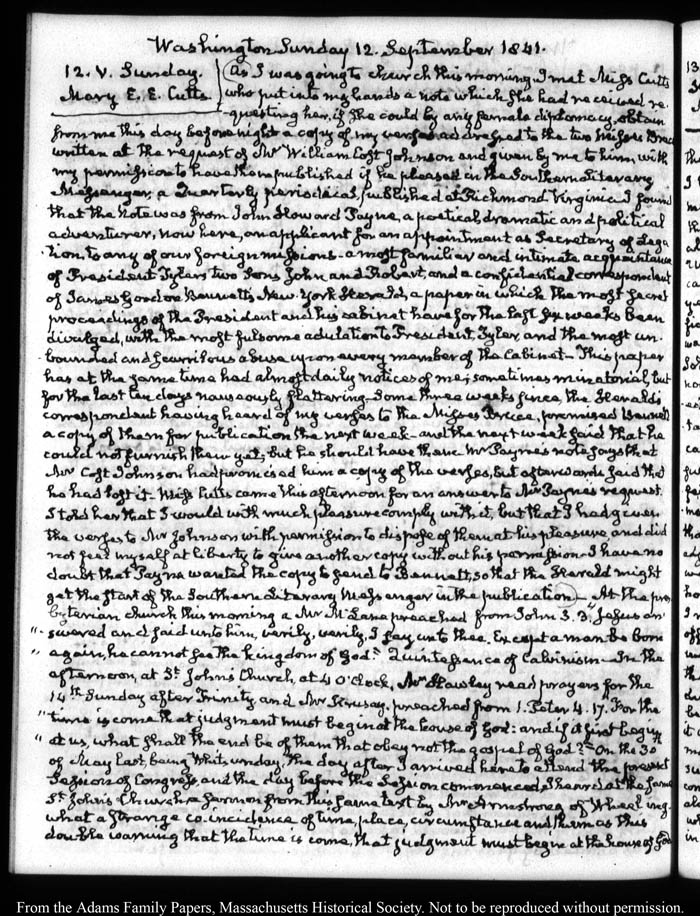 Washington Sunday 12. September 1841.
12. V. Sunday.
Mary E. E. Cutts.
As I was going to church this morning I met Miss Cutts
who put into my hands a note which she had received re-
-questing her, if she could by any female diplomacy, obtain
from me this day before night a copy of my verses addressed to the two Misses Bruce
written at the request of Mr William Cost Johnson and given by me to him, with
my permission to have them published if he pleased in the Southern Literary
Messenger, a Quarterly periodical, published at Richmond Virginia. I found
that the Note was from John Howard Payne, a poetical, dramatic and political
adventurer, now here, an applicant for an appointment as Secretary of Lega-
tion to any of our foreign missions - a most familiar and intimate acquaintance
of President Tyler's two Sons John and Robert, and a confidential correspondent
of James Gordon Bennett's New-York Herald, a paper in which the most secret
proceedings of the President and his cabinet have for the last six weeks been
divulged, with the most fulsome adulation to President Tyler, and the most un-
-bounded and scurrilous abuse upon every member of the Cabinet - This paper
has at the same time had almost daily notices of me; sometimes minatorial, but
for the last ten days nauseously flattering - Some three weeks since, the Herald's
correspondent having heard of my verses to the Misses Bruce, promised Bennett
a copy of them for publication the next week - and the next week said that he
could not furnish them yet, but he should have them Mr Payne's note says that
Mr Cost Johnson had promised him a copy of the verses, but afterwards said that
he had lost it. Miss Cutts came this afternoon for an answer to Mr Payne's request.
I told her that I would with much pleasure comply with it, but that I had given
the verses to Mr Johnson with permission to dispose of them at his pleasure and did
not feel myself at liberty to give another copy without his permission - I have no
doubt that Payne wanted the copy to send to Bennett, so that the Herald might
get the start of the Southern Literary Messenger in the publication - At the pres-
byterian church this morning a Mr McLane preached from John 3. 3. "Jesus an-
"swered and said unto him, verily, verily, I say unto thee, Except a man be born
"again, he cannot see the kingdom of God." Quintessence of Calvinism - In the
afternoon, at St. John's Church, at 4 O'Clock, Mr Hawley read prayers for the
14th Sunday after Trinity and Mr preached from 1. Peter 4. 17. "For the
"time is come that judgment must begin at the house of God: and if it first begin
"at us, what shall the end be of them that obey not the gospel of God?" On the 30
of May last, being Whitsunday, the day after I arrived here to attend the present
Session of Congress, and the day before the Session commenced, I heard at the same
St. John's Church a sermon from this same text by Mr Armstrong of Wheeling.
what a strange co-incidence of time, place, circumstance and theme as this
double warning that the time is come, that judgment must begin at the house of God
From the Adams Family Papers, Massachusetts Historical Society. Not to be reproduced without permission.